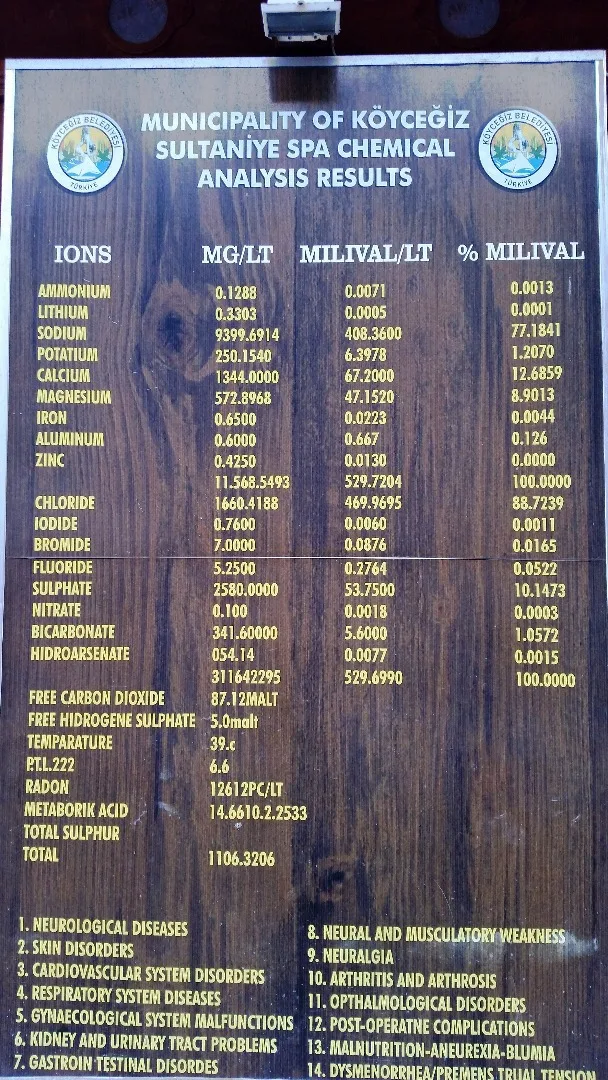 MUNICIPALITY OF KÖYCEĞİZ
SULTANİYE SPA CHEMICAL
ANALYSIS RESULTS
KÖYCEĞİZ BELEDİYESİ
TÜRKİYE
KÖYCEĞİZ BELEDİYESİ
TÜRKİYE
IONS MG/LT MILIVAL/LT % MILIVAL
AMMONIUM 0.1288 0.0071 0.0013
LITHIUM 0.3303 0.0005 0.0001
SODIUM 9399.6914 408.3600 77.1841
POTATIUM 250.1540 6.3978 1.2070
CALCIUM 1344.0000 67.2000 12.6859
MAGNESIUM 572.8968 47.1520 8.9013
IRON 0.6500 0.0223 0.0044
ALUMINUM 0.6000 0.667 0.126
ZINC 0.4250 0.0130 0.0000
11.568.5493 529.7204 100.0000
CHLORIDE 1660.4188 469.9695 88.7239
IODIDE 0.7600 0.0060 0.0011
BROMIDE 7.0000 0.0876 0.0165
FLUORIDE 5.2500 0.2764 0.0522
SULPHATE 2580.0000 53.7500 10.1473
NITRATE 0.100 0.0018 0.0003
BICARBONATE 341.60000 5.6000 1.0572
HIDROARSENATE 054.14 0.0077 0.0015
311642295 529.6990 100.0000
FREE CARBON DIOXIDE 87.12MALT
FREE HIDROGENE SULPHATE 5.0malt
TEMPARATURE 39.c
P.T.L.222 6.6
RADON 12612PC/LT
METABORIK ACID 14.6610.2.2533
TOTAL SULPHUR
TOTAL 1106.3206
1. NEUROLOGICAL DISEASES
2. SKIN DISORDERS
3. CARDIOVASCULAR SYSTEM DISORDERS
4. RESPIRATORY SYSTEM DISEASES
5. GYNAECOLOGICAL SYSTEM MALFUNCTIONS
6. KIDNEY AND URINARY TRACT PROBLEMS
7. GASTROIN TESTINAL DISORDES
8. NEURAL AND MUSCULATORY WEAKNESS
9. NEURALGIA
10. ARTHRITIS AND ARTHROSIS
11. OPTHALMOLOGICAL DISORDERS
12. POST-OPERATNE COMPLICATIONS
13. MALNUTRITION-ANEUREXIA-BLUMIA
14. DYSMENORRHEA/PREMENS TRUAL TENSION